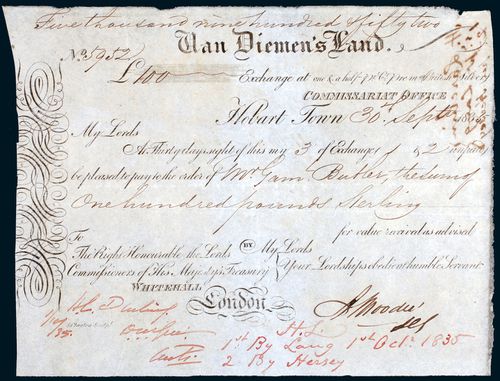 Five thousand nine hundred & fifty two
Van Diemen's Land.
No. 5952
£100 Exchange at one & a half p. Ct. Prem British Silver
COMMISSARIAT OFFICE
Hobart Town 30th Septr 1833
My Lords
At Thirty days sight of this my 3 of Exchange 1 & 2 unpaid
be pleased to pay to the order of Mr Butler, the sum of
One hundred pounds Sterling
for value received as advised
To
The Right Honourable the Lords
Commissioners of His Majesty's Treasury
WHITEHALL
London
BY
My Lords
Your Lordships obedient humble Servant
A Moodie
1st By Lang 1st Oct. 1835
2 By Hersey